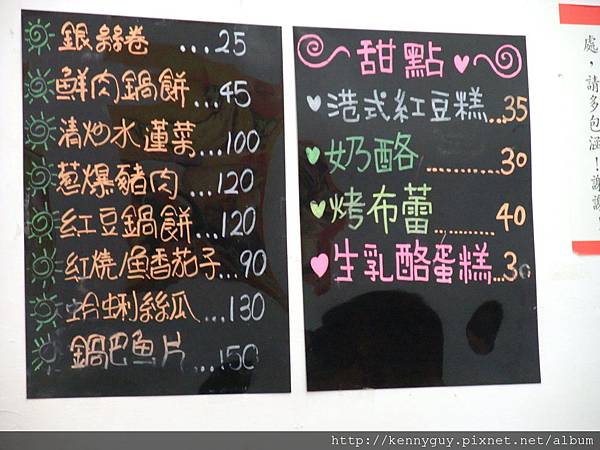 銀絲卷 ...25
鮮肉鍋餅...45
清炒水蓮菜...100
蔥爆豬肉...120
紅豆鍋餅...120
紅燒/魚香茄子...90
蛤蜊絲瓜...130
鍋巴魚片...150
甜點
港式紅豆糕...35
奶酪..........30
烤布蕾..........40
生乳酪蛋糕...30
處，請多包涵！謝謝
http://kennyguy.pixnet.net/album